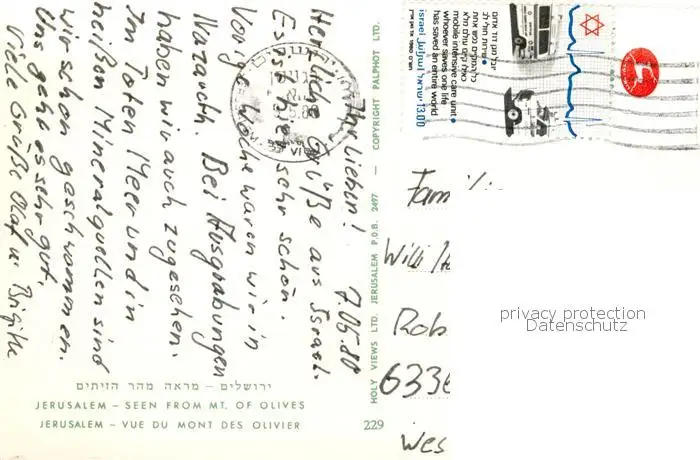 Ihr Lieben! 7.05.80
Herzliche Grüße aus Israel.
Es ist hier sehr schön.
Vorige Woche waren wir in
Nazareth. Bei Ausgrabungen
haben wir auch zugesehen.
Im Toten Meer und in
heißen Mineralquellen sind
wir schon geschwommen.
Uns geht es sehr gut.
Viele Grüße Olaf u. Brigitte
ירושלים – מראה מהר הזיתים
JERUSALEM – SEEN FROM MT. OF OLIVES
JERUSALEM – VUE DU MONT DES OLIVIER
229
HOLY VIEWS LTD. JERUSALEM P.O.B. 2497 — COPYRIGHT PALPHOT LTD.
mobile intensive care unit
whoever saves one life
has saved an entire world
israel اسرائيل ישראל 13.00
Famili
Willi
Rob
6336
Wes
privacy protection
Datenschutz